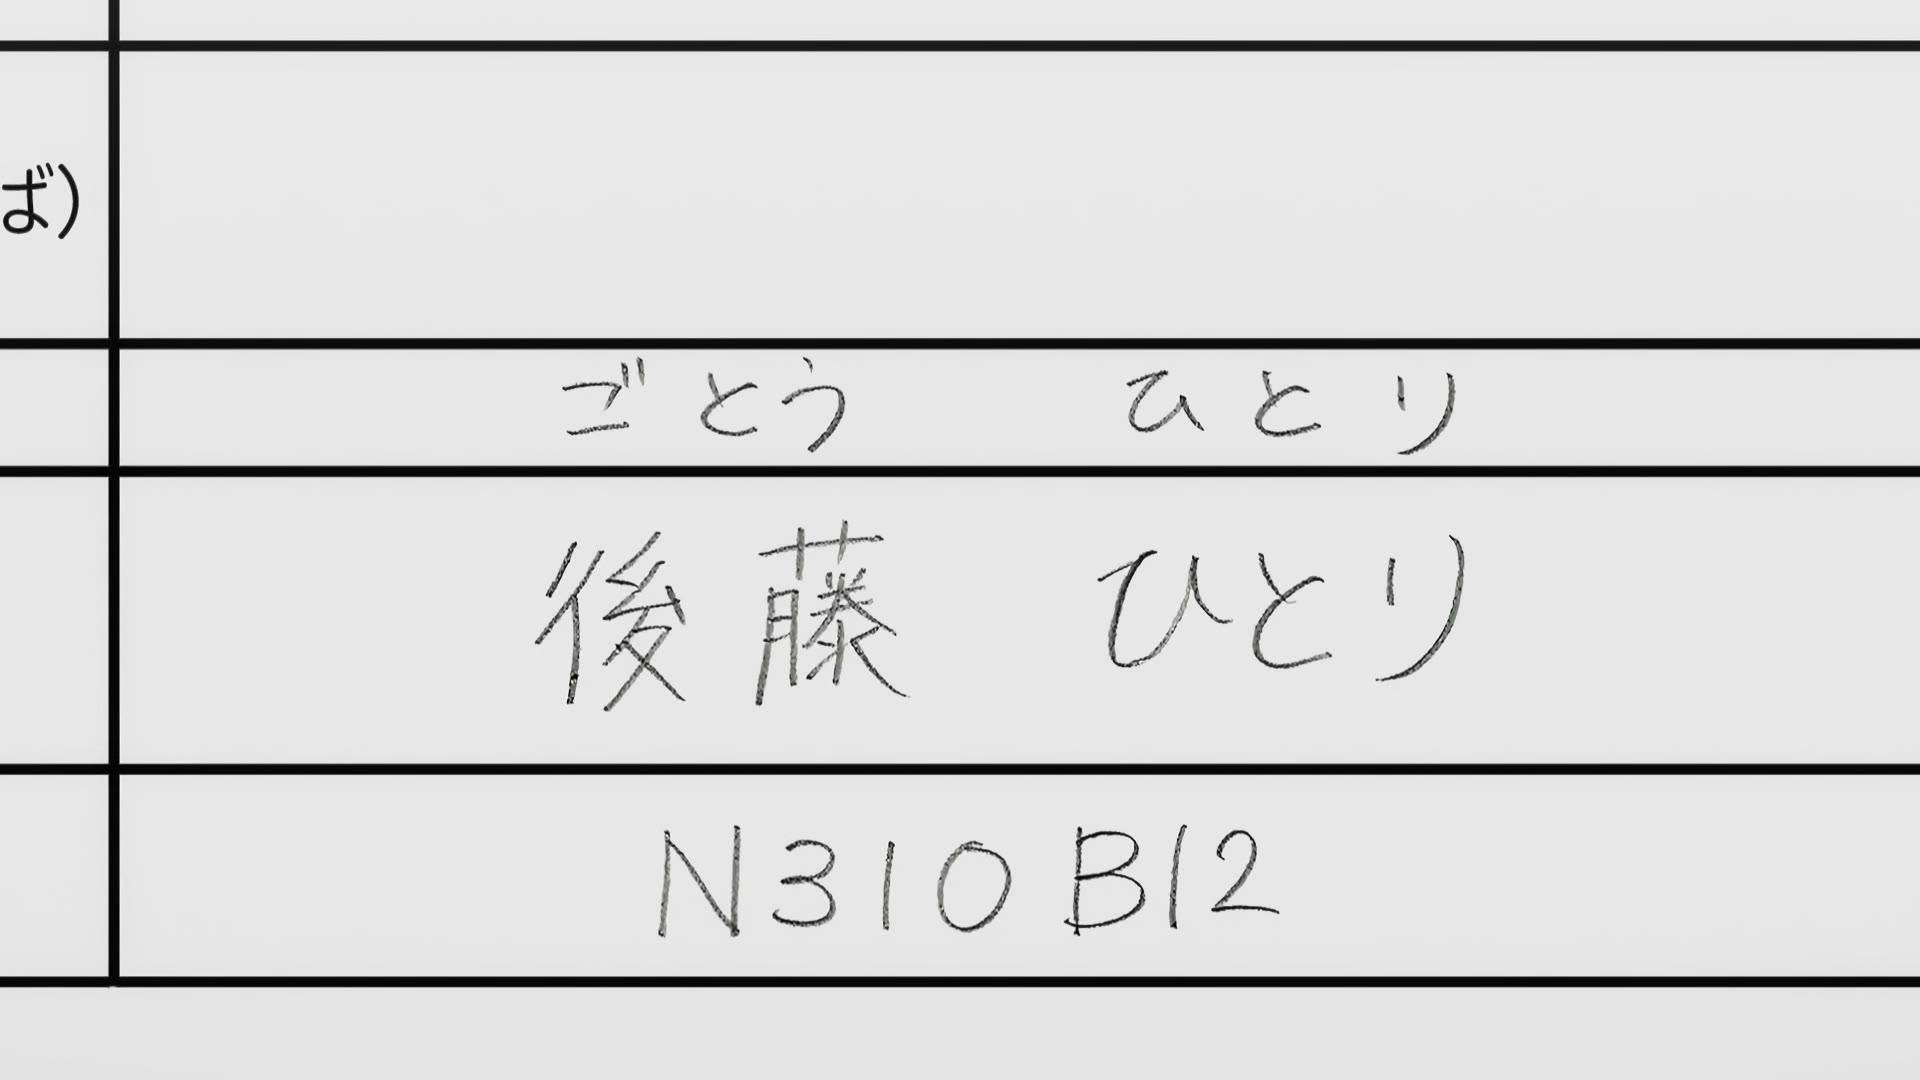 ば)
ごとう ひとり
後藤 ひとり
N310B12